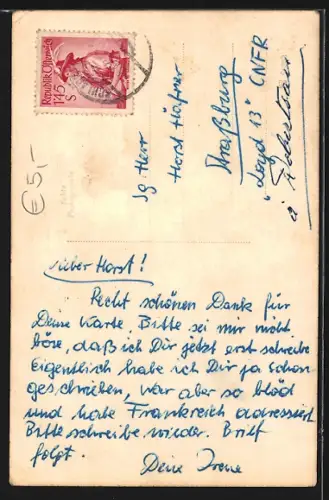 Republik Österreich
1.45
S
€5,-
Sg Herr
Horst Häfner
Straßburg
"Loyd 13" CNFR
à
Lieber Horst!
Recht schönen Dank für
Deine Karte. Bitte sei mir nicht
böse, daß ich Dir jetzt erst schreibe
Eigentlich habe ich Dir ja schon
geschrieben, war aber so blöd
und habe Frankreich adressiert
Bitte schreibe wieder. Brief
folgt.
Deine Irene